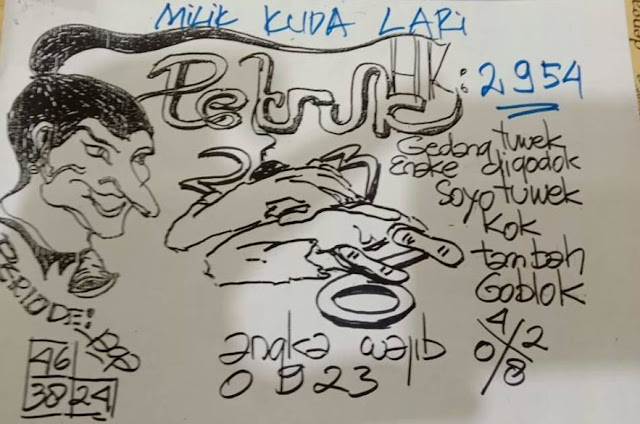 MiLiK KUDA LARi
Petruk HK: 2954
Gedang tuwek
Enake digodok
Soyo tuwek
Kok
tambah
Goblok
PERIODE:
46
38 24
angka wajib
0 9 2 3
4
0 2
8